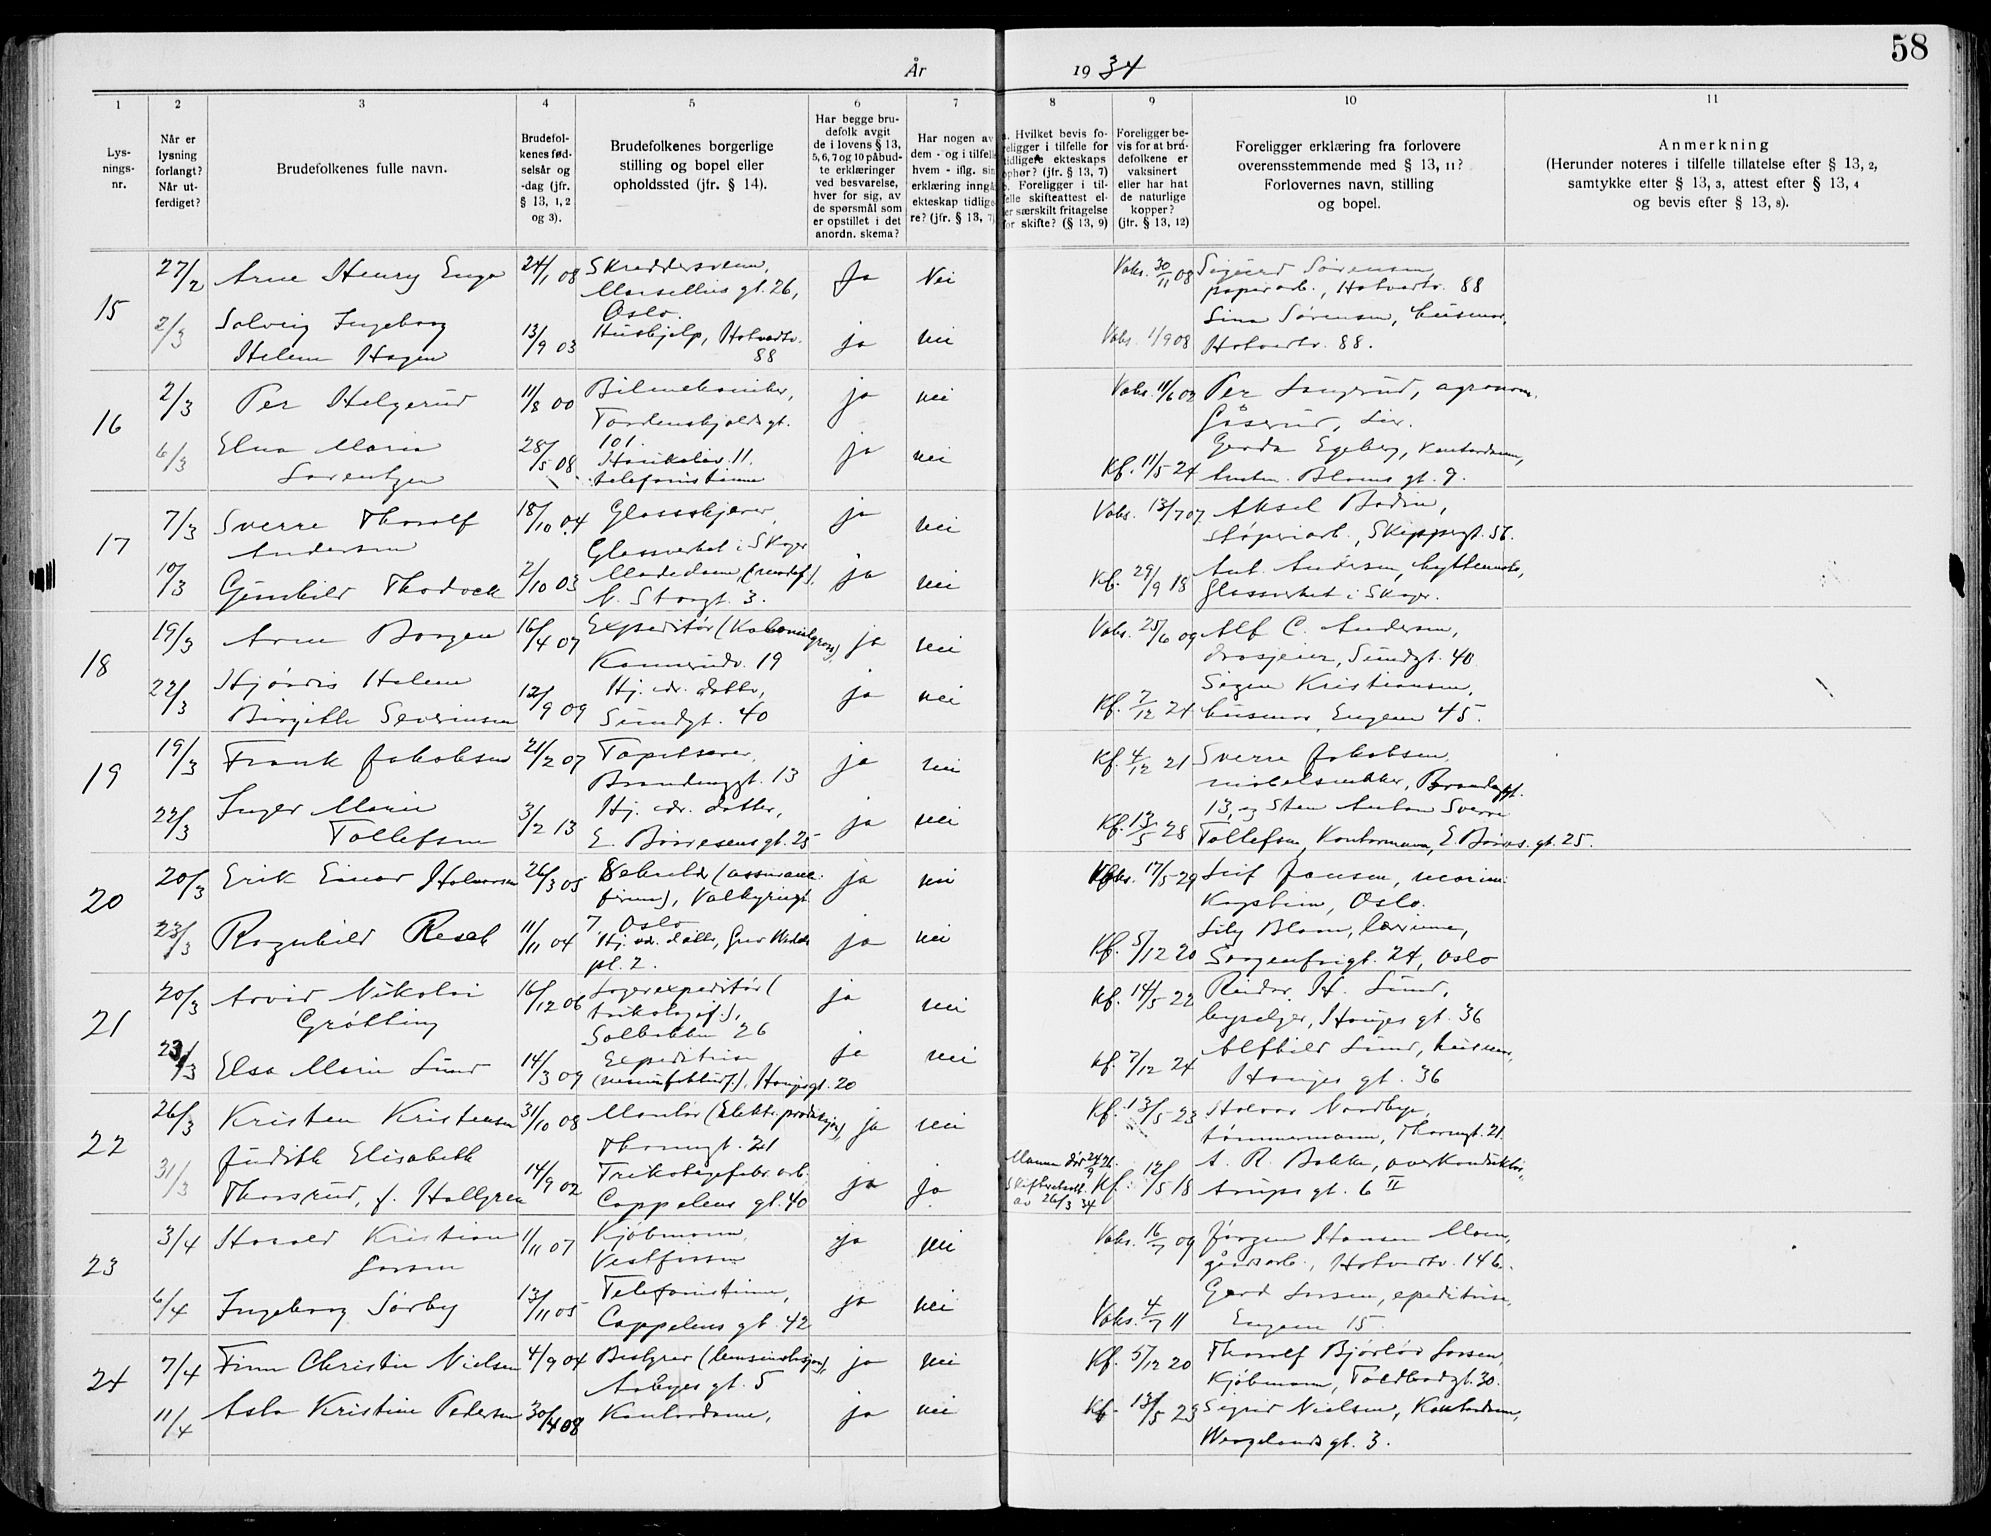 58
År 1934
1 2 3 4 5 6 7 8 9 10 11
Lys-
nings-
nr.
Når er
lysning
forlangt?
Når ut-
ferdiget?
Brudefolkenes fulle navn.
Brudefol-
kenes fød-
selsår og
-dag (jfr.
§ 13, 1, 2
og 3).
Brudefolkenes borgerlige
stilling og bopel eller
opholdssted (jfr. § 14).
Har begge bru-
defolk avgit
de i lovens § 13,
5, 6, 7 og 10 påbud-
te erklæringer
ved besvarelse,
hver for sig, av
de spørsmål som
er opstillet i det
anordn. skema?
Har nogen av
dem - og i tilfelle
hvem - iflg. sin
erklæring inngå
ekteskap tidlige
re? (jfr. § 13, 7)
a. Hvilket bevis fo-
religger i tilfelle for
tidligere ekteskaps
ophør? (jfr. § 13, 7)
b. Foreligger i til-
felle skifteattest el-
ler særskilt fritagelse
for skifte? (§ 13, 9)
Foreligger be-
vis for at bru-
defolkene er
vaksinert
eller har hat
de naturlige
kopper?
(jfr. § 13, 12)
Foreligger erklæring fra forlovere
overensstemmende med § 13, 11?
Forlovernes navn, stilling
og bopel.
Anmerkning
(Herunder noteres i tilfelle tillatelse efter § 13, 2,
samtykke efter § 13, 3, attest efter § 13, 4
og bevis efter § 13, 8).
15 27/2 Arne Henry Enge 24/1 08 Skreddersvenn, Ja Nei Vaks. 30/11 08 Sigurd Sørensen,
Marsellius gt. 26, papirarb., Hotvedtv. 88
Oslo. Lina Sørensen, husmor,
2/3 Solveig Ingeborg 13/9 03 Hushjelp, Hotvedtv. ja nei Vaks. 1/9 08 Hotvedtv. 88.
Helene Hagen 88
16 2/3 Per Helgerud 11/8 00 Bilmekaniker, ja nei Vaks. 11/6 02 Per Langrud, agronom,
Tordenskjolds gt. Gåserud, Lier.
101. Gerda Egeberg, kontordame,
6/3 Elna Marie 28/5 08 11. ja nei Kf. 11/5 24 Bloms gt. 9.
Lorentzen telefonistinne
17 7/3 Sverre Thoralf 18/10 04 Glasskjærer, ja nei Vaks. 13/7 07 Aksel Bodin,
Andersen Glassverket i Skoger støperiarb., Skippergt. 56.
10/3 Gunhild Thodock 2/10 03 ja nei Kf. 29/9 18 Ant. Andersen,
N. Storgt. 3. Glassverket i Skoger.
18 19/3 Arne Borgen 16/4 07 Expeditør (Kolonialgross.), ja nei Vaks. 25/6 09 Alf C. Andersen,
Konnerudv. 19 drosjeeier, Sundgt. 40
22/3 Hjørdis Helene 12/9 09 Hj. v. datter, ja nei Kf. 7/12 21 Signe Kristiansen,
Birgitte Severinsen Sundgt. 40 husmor, Engene 45.
19 19/3 Frank Jakobsen 21/2 07 Tapetserer, ja nei Kf. 4/12 21 Sverre Jakobsen,
Brandenggt. 13 møbelsnekker, Brandenggt.
22/3 Inger Marie 3/2 13 Hj. v. datter, ja nei Kf. 13/5 28 13, og Sten Anton Sverre
Tollefsen E. Børresens gt. 25 Tollefsen, Kontormann, E. Børres. gt. 25.
20 20/3 Erik Einar Halvorsen 26/3 05 (assuranse- ja nei Vaks. 17/5 29 Leif Jansen,
firma), Valkyriegt. Oslo.
7, Oslo Lily Blom, lærerinne,
23/3 Ragnhild Resch 11/11 04 Hj. v. datter, Grev Wedels ja nei Kf. 5/12 20 Sorgenfrigt. 24, Oslo
pl. 2.
21 20/3 Arvid Nikolai 16/12 06 Lagerexpeditør ( ja nei Kf. 14/5 22 Reidar H. Lund,
Grøtting trikotagef.), Hauges gt. 36
Solbakken 26
23/3 Elsa Marie Lund 14/3 09 Expeditrise ja nei Kf. 7/12 24 Alfhild Lund, husmor,
(manufakturf.), Haugesgt. 20 Hauges gt. 36
22 26/3 Kristen Kristensen 31/10 08 Montør (Elektr. ja nei Kf. 13/5 23 Halvor Nordbye,
Thornegt. 21 tømmermann, Thornegt. 21.
31/3 Judith Elisabeth 14/9 02 Trikotagefabr. arb. ja ja. Mannen død 24/9 26. Kf. 12/5 18 A. R. Bakke, overkonduktør,
Thorsrud, f. Hallgren Cappelens gt. 40 Skifteattest av 26/3 34 Arups gt. 6 II
23 3/4 Harald Kristian 1/11 07 Kjøbmann, ja nei Vaks. 16/7 09 Jørgen Hansen Moen,
Larsen Vestfossen gårdsarb., Hotvedtv. 146.
6/4 Ingeborg Sørby 13/11 05 Telefonistinne, ja nei Vaks. 4/7 11 Gerd Larsen, expeditrise,
Cappelens gt. 42 Engene 15.
24 7/4 Finn Christie Nielsen 4/9 04 Bestyrer (bensinstasjon), ja nei Kf. 5/12 20 Thoralf Bjørløv Larsen,
Aabyes gt. 5 Kjøbmann, Toldbodgt. 30.
11/4 Asla Kristine Pedersen 30/4 08 Kontordame, ja nei Kf. 13/5 23 Sigrid Nielsen, Kontordame,
Wergelands gt. 3.